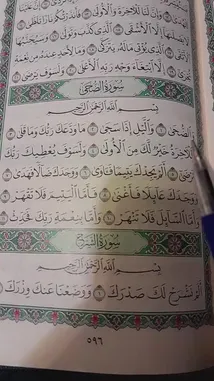 وَإِنَّ لَنَا لَلْآخِرَةَ وَالْأُولَىٰ ١٣ فَأَنذَرْتُكُمْ نَارًا
يَصْلَاهَا إِلَّا الْأَشْقَى ١٥ الَّذِي كَذَّبَ وَتَوَلَّىٰ ١٦ وَسَيُجَنَّبُهَا
الَّذِي يُؤْتِي مَالَهُ يَتَزَكَّىٰ ١٨ وَمَا لِأَحَدٍ عِندَهُ مِن نِّعْمَةٍ
إِلَّا ابْتِغَاءَ وَجْهِ رَبِّهِ الْأَعْلَىٰ ٢٠ وَلَسَوْفَ يَرْضَىٰ ٢١
سُورَةُ الضُّحَىٰ
بِسْمِ اللَّهِ الرَّحْمَٰنِ الرَّحِيمِ
وَالضُّحَىٰ ١ وَاللَّيْلِ إِذَا سَجَىٰ ٢ مَا وَدَّعَكَ رَبُّكَ وَمَا قَلَىٰ ٣
وَلَلْآخِرَةُ خَيْرٌ لَّكَ مِنَ الْأُولَىٰ ٤ وَلَسَوْفَ يُعْطِيكَ رَبُّكَ
فَتَرْضَىٰ ٥ أَلَمْ يَجِدْكَ يَتِيمًا فَآوَىٰ ٦ وَوَجَدَكَ ضَالًّا فَهَدَىٰ ٧
وَوَجَدَكَ عَائِلًا فَأَغْنَىٰ ٨ فَأَمَّا الْيَتِيمَ فَلَا تَقْهَرْ ٩
وَأَمَّا السَّائِلَ فَلَا تَنْهَرْ ١٠ وَأَمَّا بِنِعْمَةِ رَبِّكَ فَحَدِّثْ ١١
سُورَةُ الشَّرْحِ
بِسْمِ اللَّهِ الرَّحْمَٰنِ الرَّحِيمِ
أَلَمْ نَشْرَحْ لَكَ صَدْرَكَ ١ وَوَضَعْنَا عَنكَ وِزْرَكَ ٢
٥٩٦